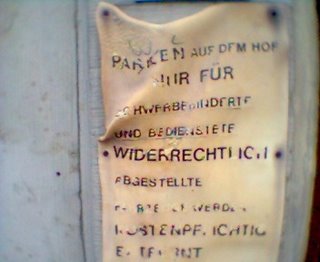 PARKEN AUF DEM HOF
NUR FÜR
SCHWERBEHINDERTE
UND BEDIENSTETE
WIDERRECHTLICH
ABGESTELLTE
WERDEN
KOSTENPFLICHTIG
ENTFERNT